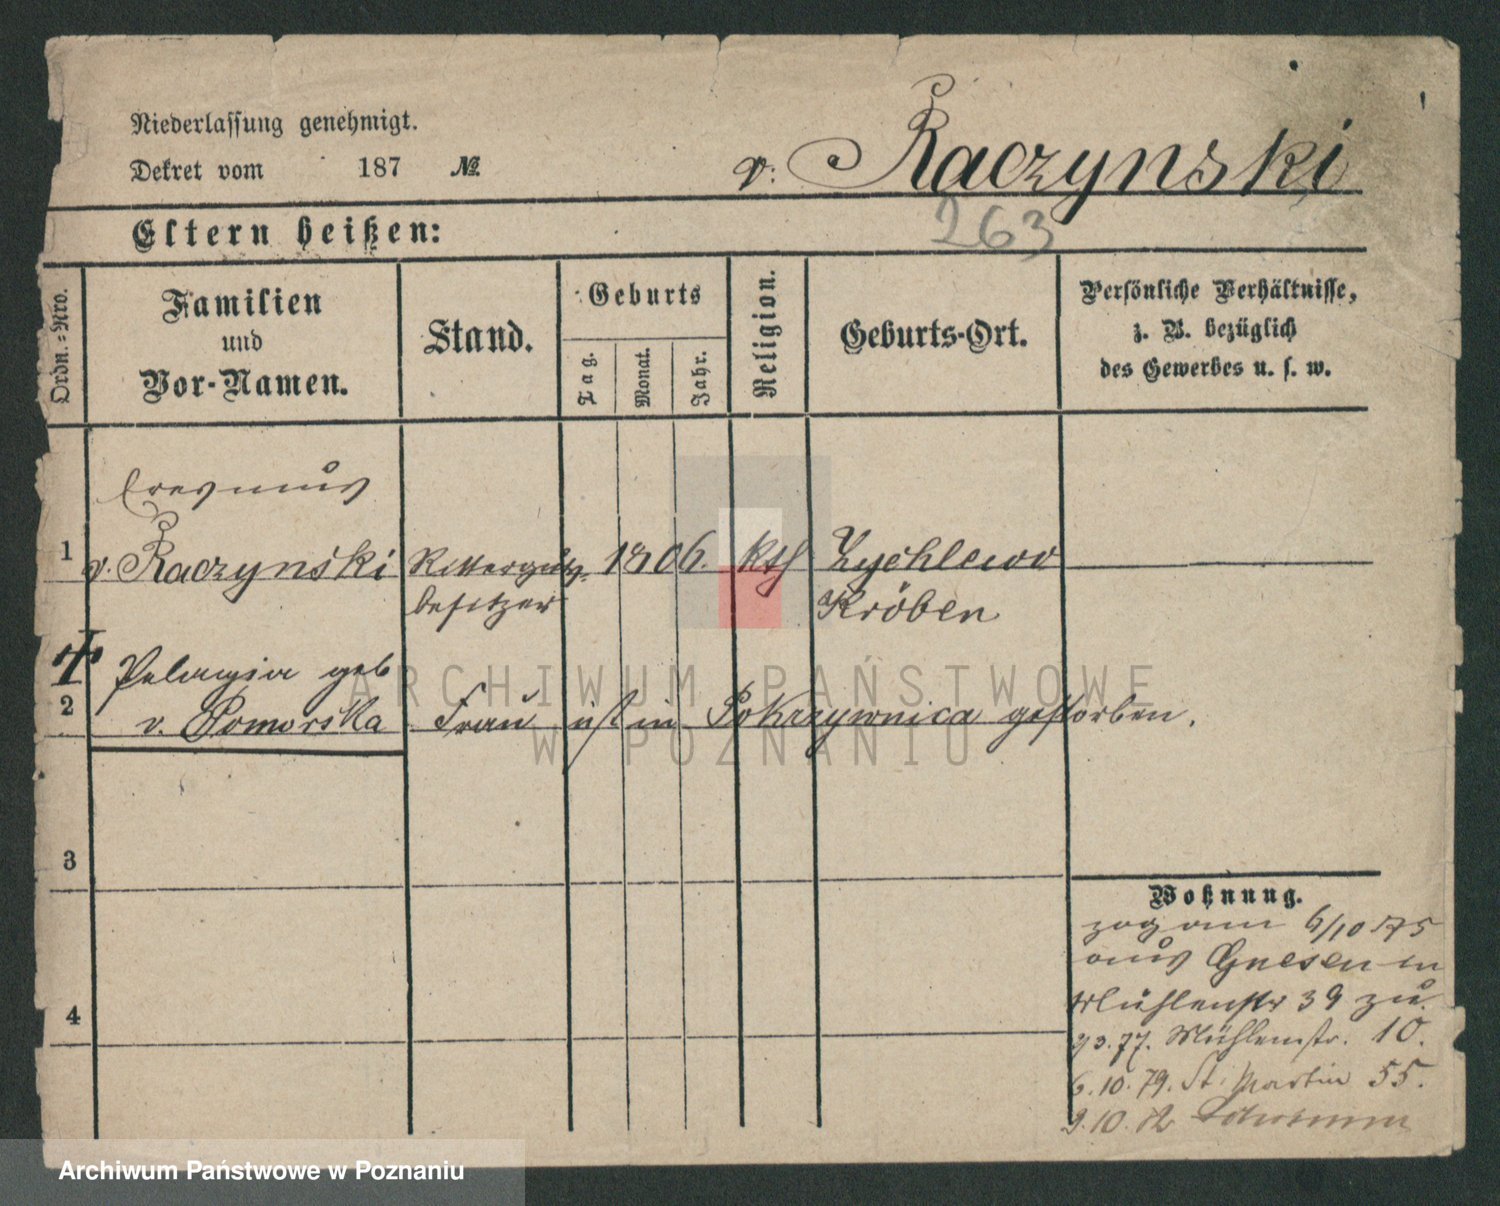 Niederlassung genehmigt.
Dekret vom 187 №
v. Raczynski
263
Eltern heißen:
Ordn.-Nro.
Familien
und
Vor-Namen.
Stand.
Geburts
Tag.
Monat.
Jahr.
Religion.
Geburts-Ort.
Persönliche Verhältnisse,
z. B. bezüglich
des Gewerbes u. s. w.
Erasmus
1 v. Raczynski Ritterguts- 1806. kth Zychlewo
besitzer Kröben
Pelagia geb
2 v. Pomorska Frau ist in Pokrzywnica gestorben.
3
4
Wohnung.
zog am 6/10 75
aus Gnesen in
Mühlenstr 39 zu.
77. Mühlenstr. 10.
6.10.79. St. Martin 55.
9.10.
ARCHIWUM PAŃSTWOWE
W POZNANIU
Archiwum Państwowe w Poznaniu